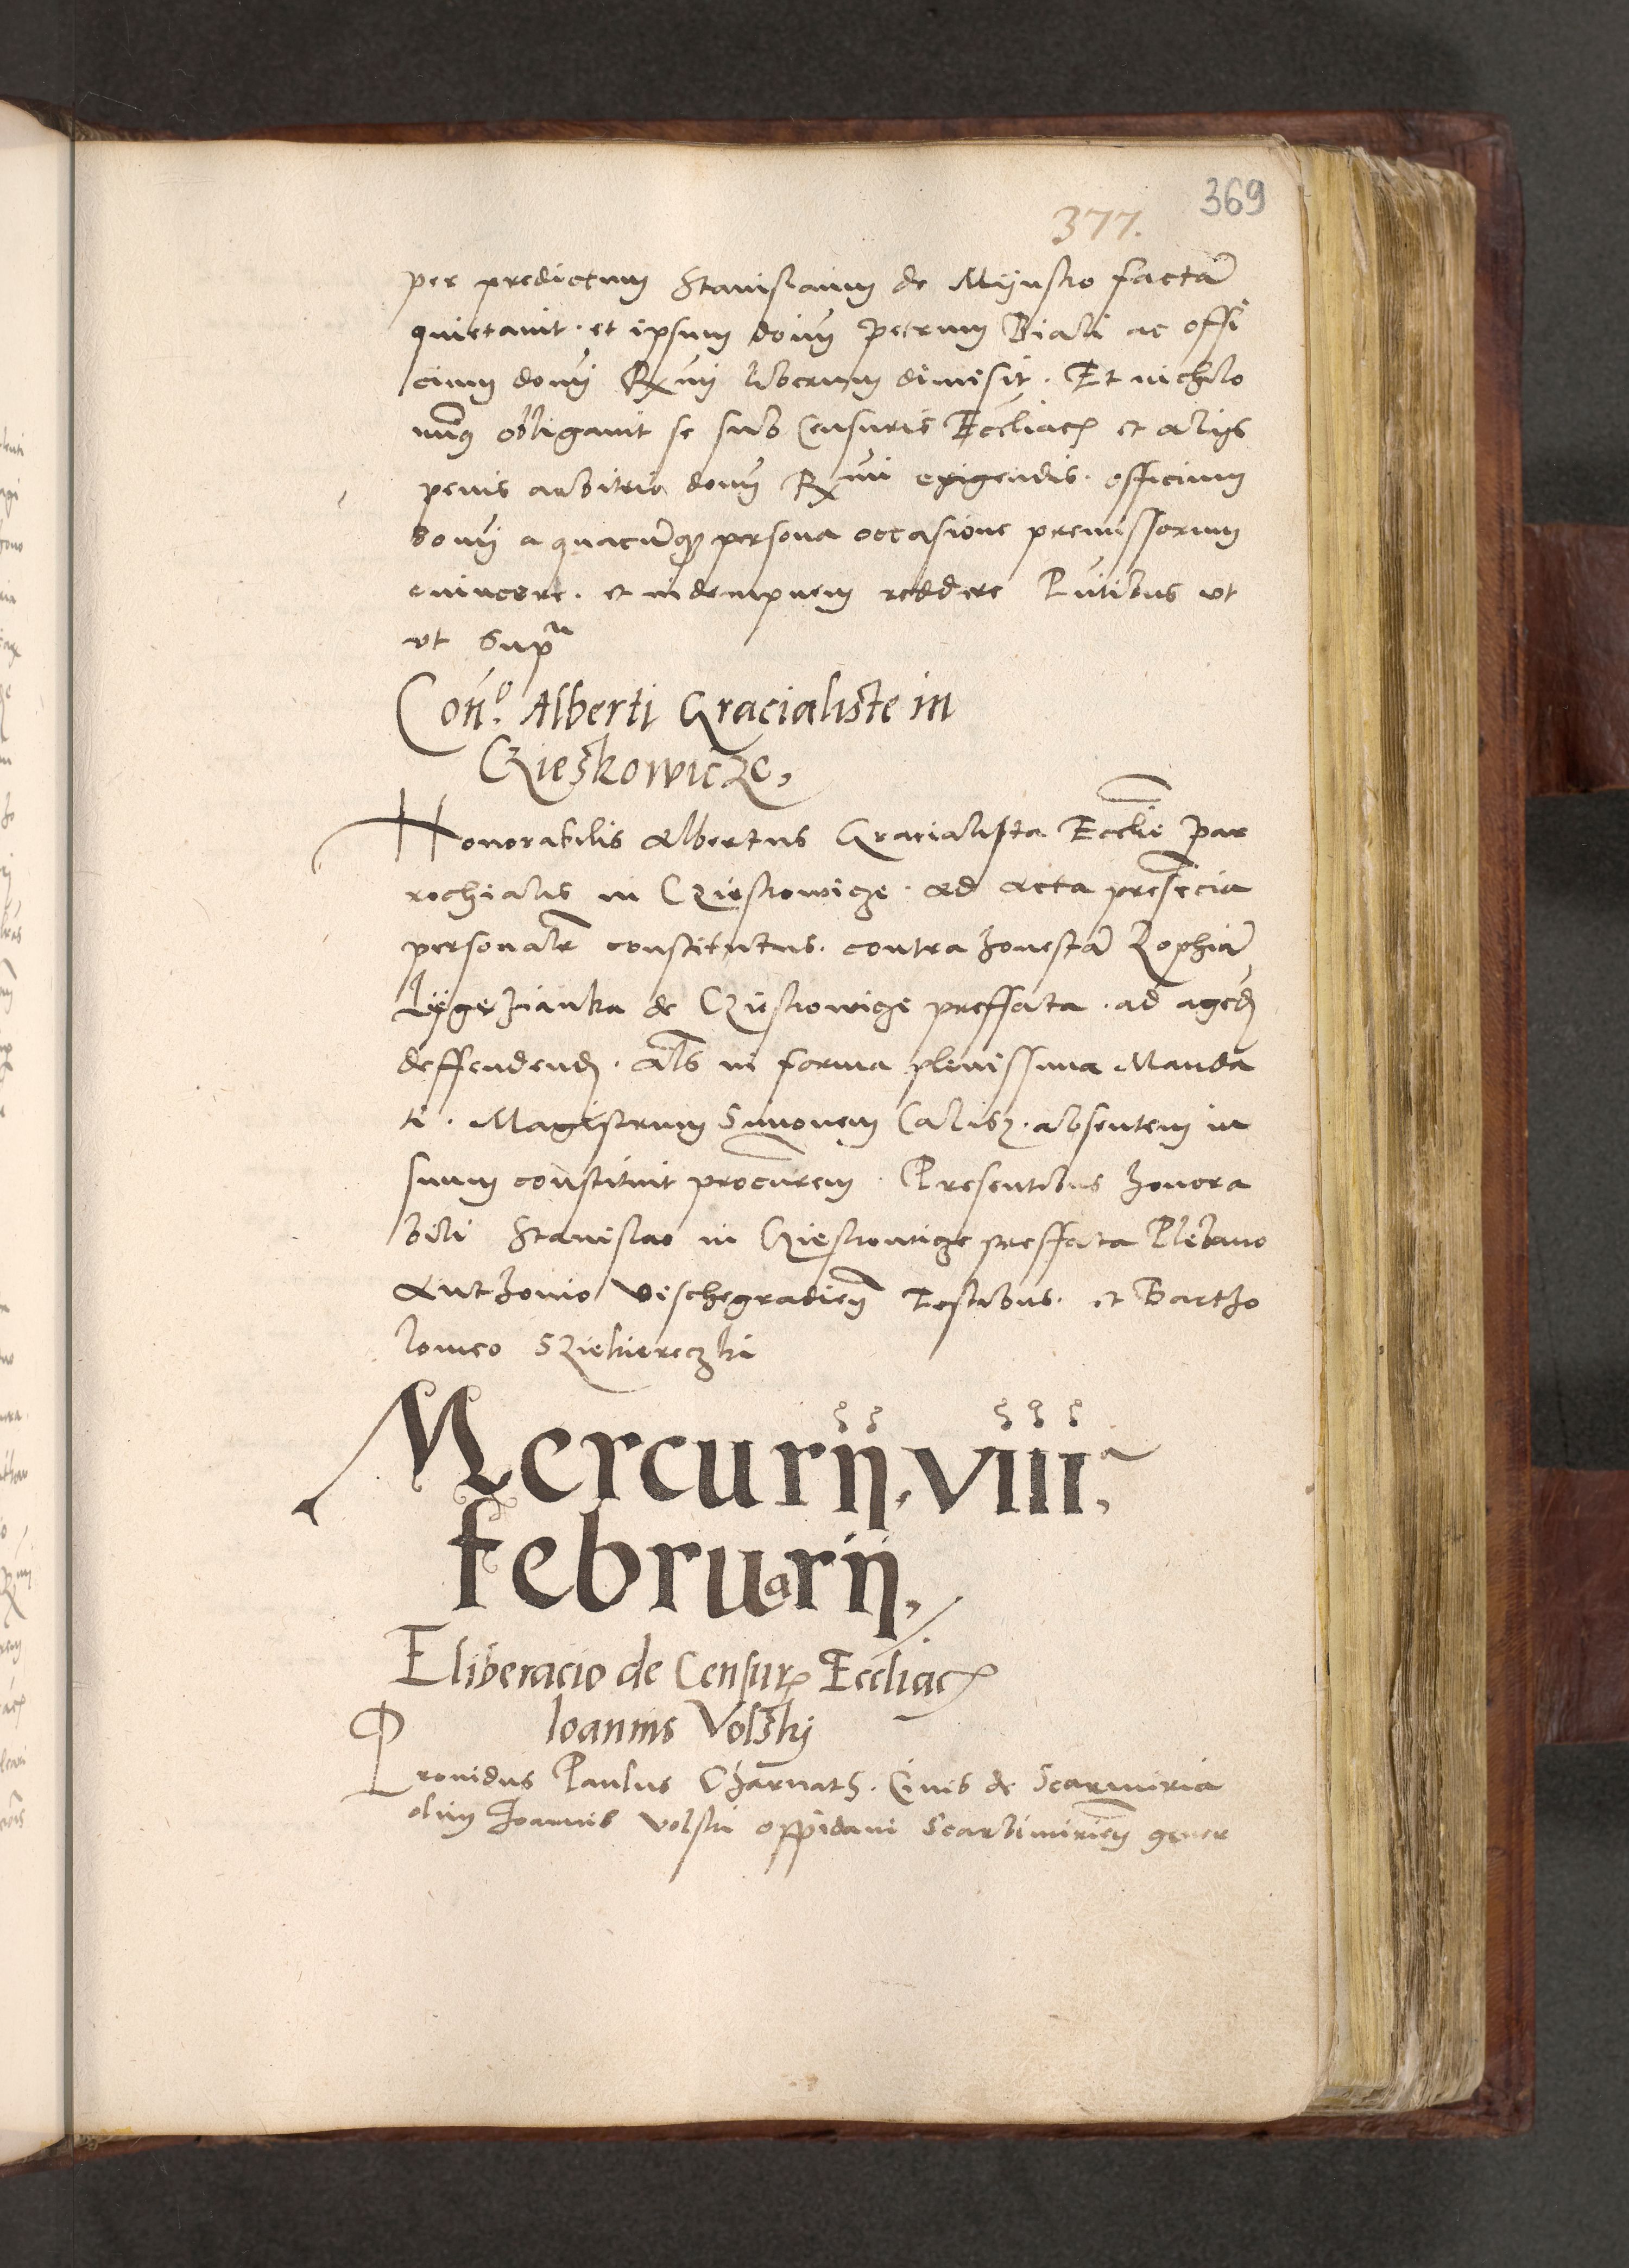 369
377.
per predictum Stanislaum de Mijnsko factā
quietavit · et ipsum doñ Petrum Biali ac offi
cium domī Rxmi liberum dimisit · Et nichilo
minꝰ obligavit se sub Censuris Eccliacꝭ et alijs
penis arbitrio domī Rxmi exigendis · officium
domī a quacūqꝫ persona occasione premissorum
evincere · et indempnem reddere Pñtibus vt
vt supra
Conᵒ. Alberti Gracialiste in
Czieskowicze,
Honorabilis Albertus Gracialista Ecclie par
rochialis in Czieskowicze · ad acta presēcia
personalr constitutus · contra honestā Zophiā
de Czieskowicze preffata · ad agēdꝭ
deffendendꝭ · als in forma plenissima Manda
ti · Magistrum Simonem Calisz · absentem in
suum constituit procurem · Presentibus honora
bili Stanislao in Czieskowicze preffata Plebano
Anthonio Vischegradien̄ Testibus · et Bartho
lomeo Sziekiereczki
Mercurij, VIIIᵃ,
februarij,
Eliberacio de Censurꝭ Eccliacꝭ
Ioannis Volski
Providus Paulus Charnath · Civis de Scarmiria
olim Joannis Volski oppidani Scarbimirien̄ gener